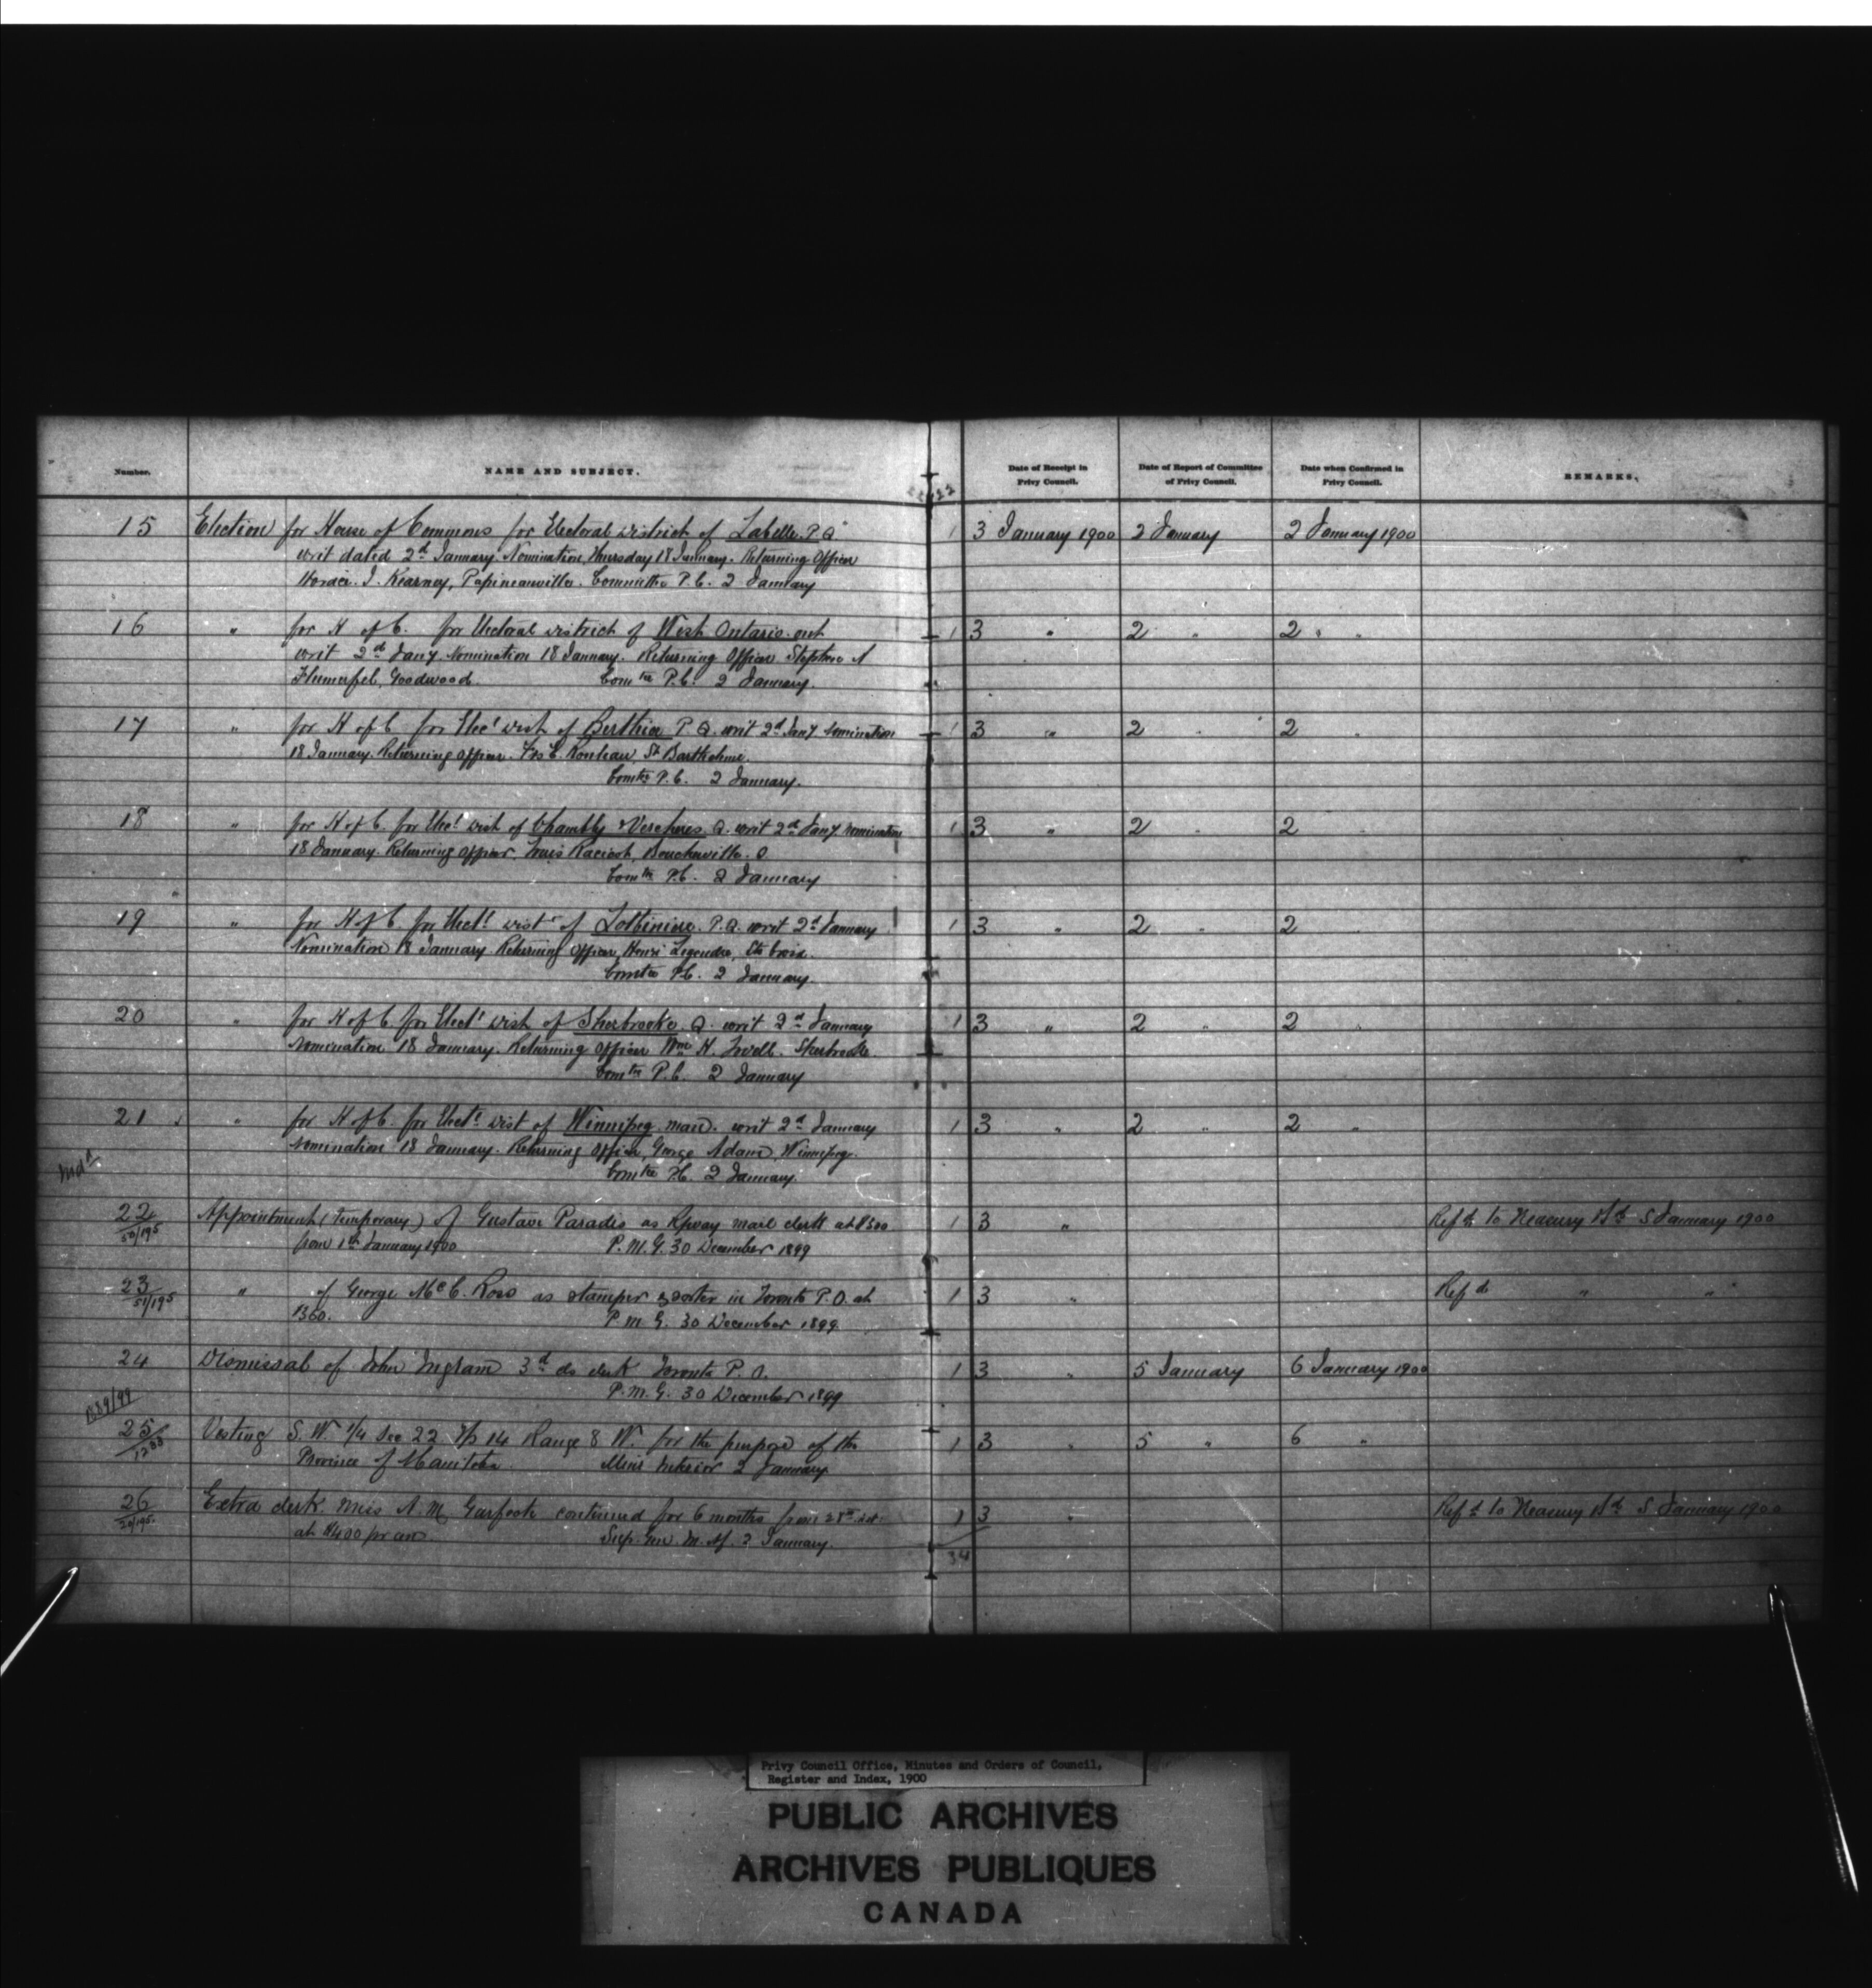 Number.
NAME AND SUBJECT.
Date of Receipt in Privy Council.
Date of Report of Committee of Privy Council.
Date when Confirmed in Privy Council.
REMARKS.
15 Election for House of Commons for Electoral District of Labelle. P.Q 1 3 January 1900 2 January 2 January 1900
writ dated 2d January. Nomination, Thursday 18 January. Returning Officer
Horace. J. Kearney, Papineauville. Committee P.C. 2 January
16 " for H of C. for Electoral District of West Ontario. ont 1 3 " 2 " 2 " "
writ 2d Jany Nomination 18 January. Returning Officer Stephen A
Flumerfel, Goodwood. Comtee P.C. 2 January.
17 " for H of C for Elecl Dist of Berthier P.Q. writ 2d Jany Nomination 1 3 " 2 " 2 "
18 January. Returning Officer. St Bartholme.
Comtee P.C. 2 January.
18 " for H of C. for Elecl Dist of Chambly & Vercheres Q. writ 2d Jany Nomination 1 3 " 2 " 2
18 January. Returning Officer, Louis Racicot, Boucherville. Q
Comtee P.C. 2 January
19 " for H of C for Electl Distr of Lotbiniere. P.Q. writ 2d January 1 3 " 2 " 2
Nomination 18 January Returning Officer, Henri Legendre, Ste Croix.
Comtee P.C. 2 January.
20 " for H of C for Electl Dist of Sherbrooke. Q. writ 2d January 1 3 " 2 " 2 "
Nomination 18 January. Returning Officer Wm H. Lovell. Sherbrooke
Comtee P.C. 2 January
21 " for H of C. for Electl Dist of Winnipeg. man. writ 2d January 1 3 " 2 " 2 "
Nomination 18 January. Returning Officer, George Adam, Winnipeg.
Comtee P.C. 2 January.
22 Appointment (Temporary) of Gustave Paradis as Rlway mail clerk at 1 3 " Refd to Treasury Bd 5 January 1900
50/195 from 1st January 1900 P.M.G. 30 December 1899
23 " of George McC. Ross as stamper & sorter in Toronto P.O. at 1 3 " Refd " "
51/195 $360. P.M.G. 30 December 1899.
24 Dismissal of John Ingram 3d cls clerk Toronto P.O. 1 3 " 5 January 6 January 1900
P.M.G. 30 December 1899
25 Vesting S.W 1/4 Sec 22 Tp 14 Range 8 W. for the purpose of the 1 3 " 5 " 6 "
Province of Manitoba. Minr Interior 2 January
26 Extra clerk. Miss A. M. continued for 6 months from 1 3 " Refd to Treasury Bd 5 January 1900
at $400 pr an 2 January.
34
Privy Council Office, Minutes and Orders of Council,
Register and Index, 1900
PUBLIC ARCHIVES
ARCHIVES PUBLIQUES
CANADA